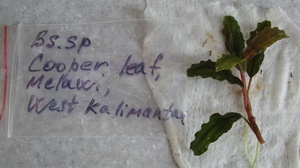 Bs.sp
Cooper leaf,
Melawi,
West Kalimantan